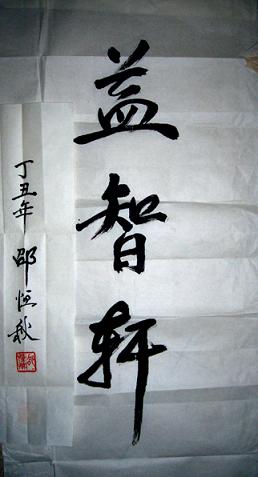 益智轩
丁丑年 邵恒秋